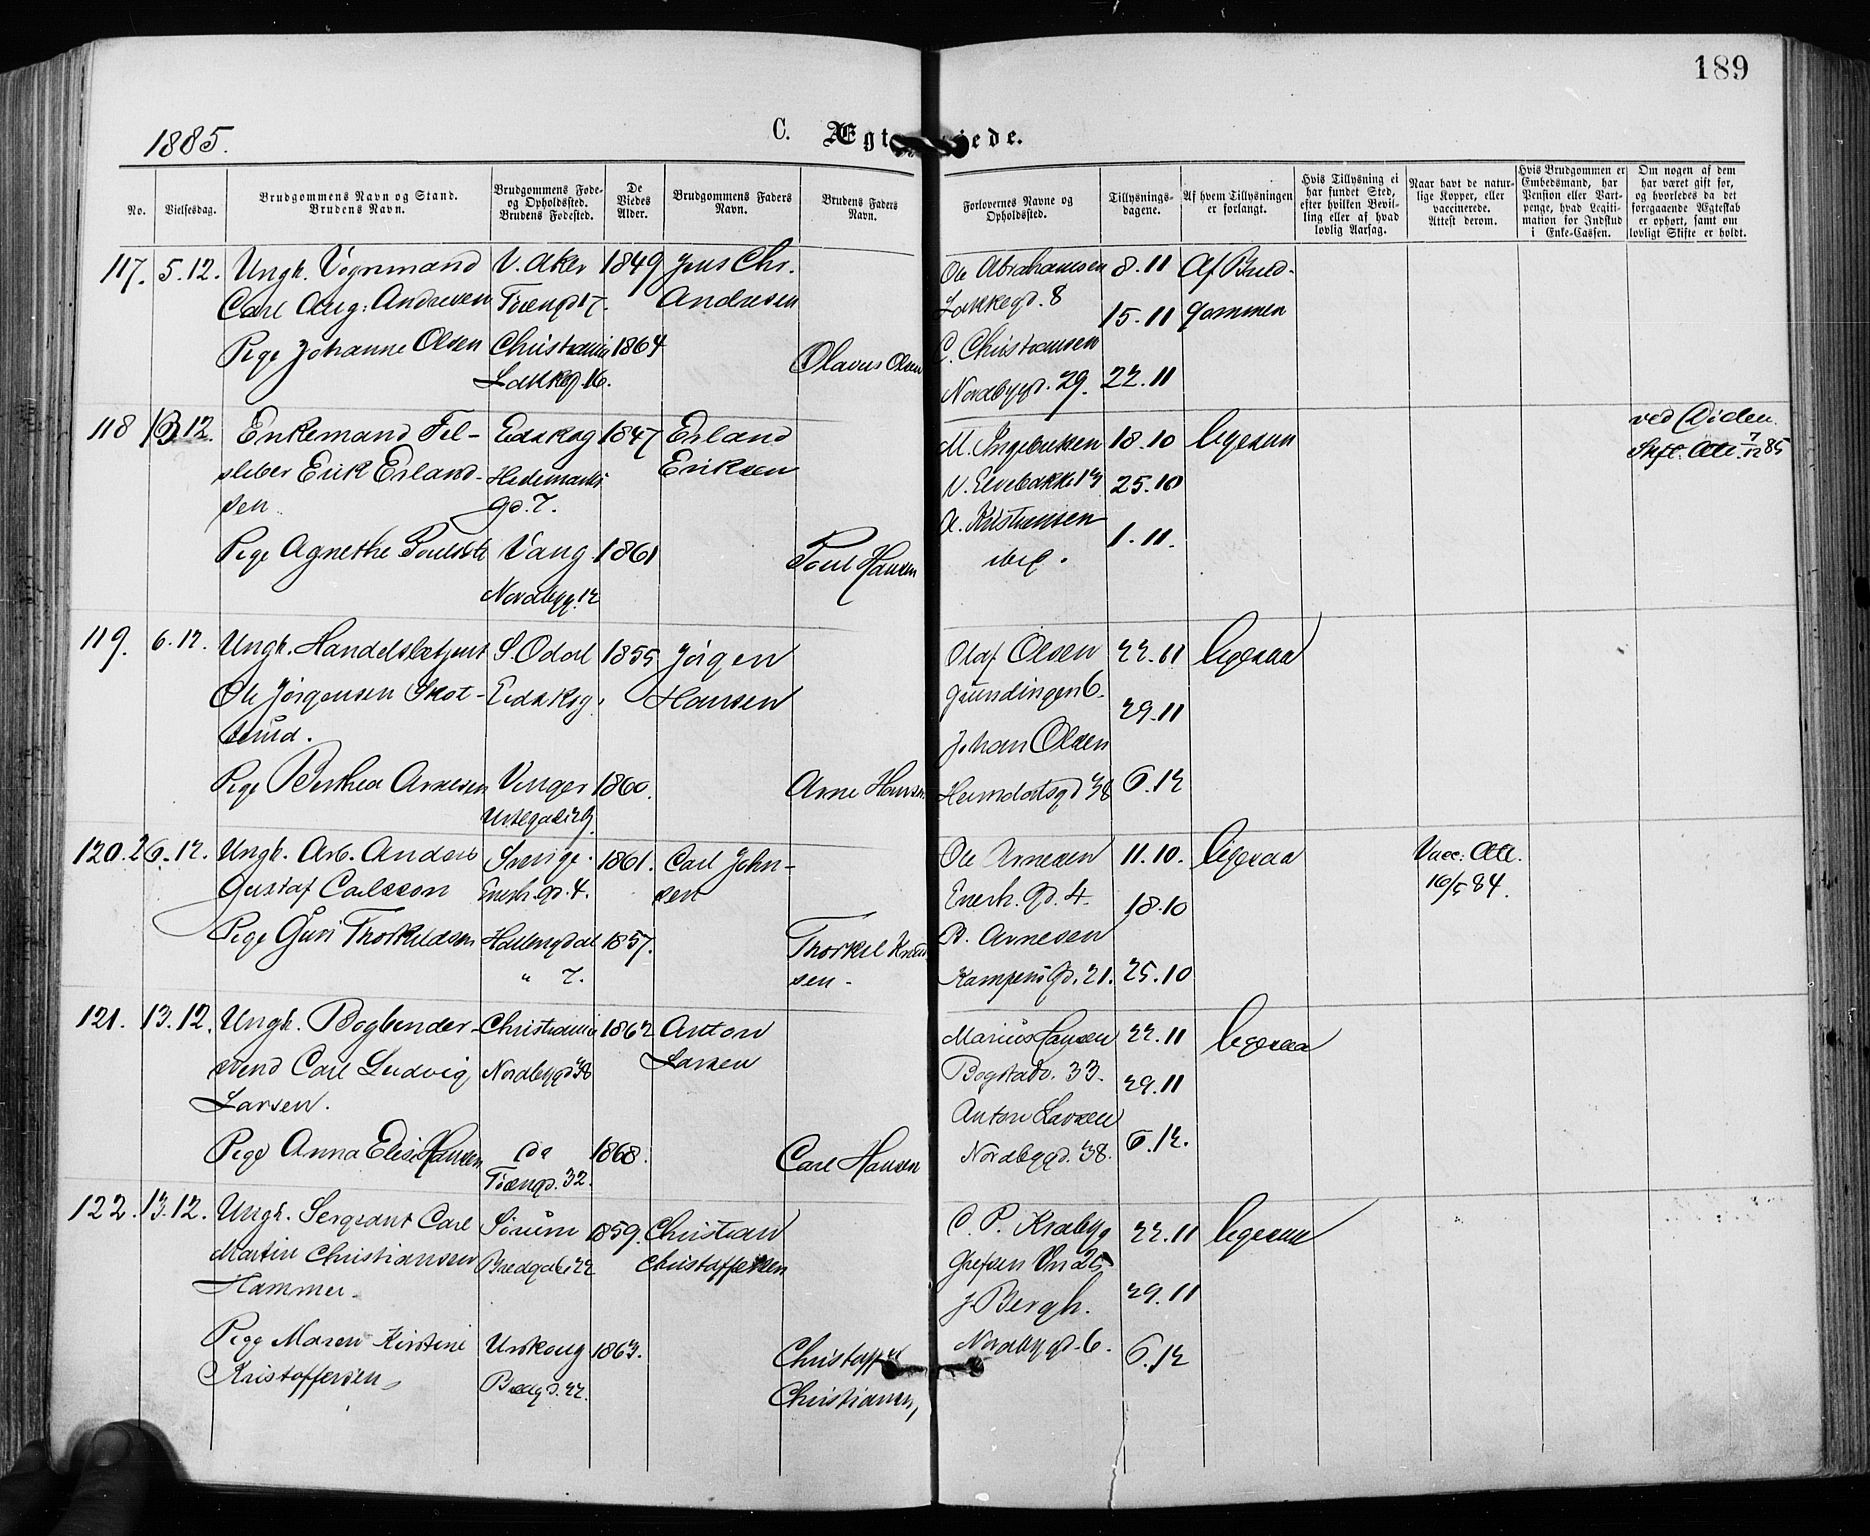 189
1885.
C. Ægt viede.
No.
Vielsesdag.
Brudgommens Navn og Stand.
Brudens Navn.
Brudgommens Føde-
og Opholdssted.
Brudens Fødested.
De
Viedes
Alder.
Brudgommens Faders
Navn.
Brudens Faders
Navn.
Forlovernes Navne og
Opholdssted.
Tillysnings-
dagene.
Af hvem Tillysningen
er forlangt.
Hvis Tillysning ei
har fundet Sted,
efter hvilken Bevil-
ling eller af hvad
lovlig Aarsag.
Naar havt de natur-
lige Kopper, eller
vaccinerede.
Attest derom.
Hvis Brudgommen er
Embedsmand, har
Pension eller Vart-
penge, hvad Legiti-
mation for Indskud
i Enke-Cassen.
Om nogen af dem
har været gift før,
og hvorledes da det
foregaaende Ægteskab
er ophørt, samt om
lovligt Skifte er holdt.
117. 5.12. Ungk. Vognmand V. Aker 1849 Jens Chr. Ole Abrahamsen 8.11 Af Brud-
Carl Aug: Andresen Tøengd 7. Andresen Lakkegd. 8 15.11 gommen
Pige Johanne Olsen Christiania 1864 Olavus Olsen C. Christiansen
Lakkegd. 16. Nordbygd. 29. 22.11
118 13.12. Enkemand Fel- Eidskog 1847 Erland M. Ingebretsen 18.10 ligesaa ved Døden
sleber Erik Erland- Hedemarks Eriksen N. Elvebakke 13 25.10 Skft. Att. 7/12 85
sen. gd. 7. A. Kristiansen
Pige Agnethe Vang 1861 Poul Hansen ibid. 1.11.
Nordbygg. 12
119. 6.12. Ungk. Handelsbetjent S. Odal 1855 Jørgen Olaf Olsen 22.11 ligesaa
Ole Jørgensen Skot- Eidskog. Hansen Grundingen 6. 29.11
terud. Johan Olsen
Pige Berthea Arnesen Vinger 1860. Arne Hansen Heimdalsgd 38 6.12
120. 26.12. Ungk. Arb. Anders Sverige. 1861. Carl John- Ole Arnesen 11.10. ligesaa Vacc: Att.
Gustaf Carlsson Enerh. gd. 4. sen Enerh. Gd. 4. 18.10 16/5 84.
Pige Guri Thorkildsen Hallingdal 1857. Thorkil Knud- B. Arnesen
" 7. sen. Kampens Gd. 21. 25.10
121. 13.12. Ungk. Bogbinder- Christiania 1862 Anton Marius Hansen 22.11 ligesaa
svend Carl Ludvig Nordbygd 38 Larsen Bogstadv. 33. 29.11
Larsen. Anton Larsen
Pige Anna Elise Hansen do 1868. Carl Hansen Nordbygd. 38. 6.12.
Tøengd. 32.
122. 13.12. Ungk. Sergeant Carl Sørum 1859. Christian C. P. Kraabyg 22.11 ligesaa
Martin Christiansen Bredgd. 22 Christoffersen Grefsen Vn 25
Hammer. J. Bergh. 29.11
Pige Maren Kirstine Urskoug 1863. Christoffer Nordbygd. 6. 6.12
Kristoffersen Bredgd. 22. Christiansen,